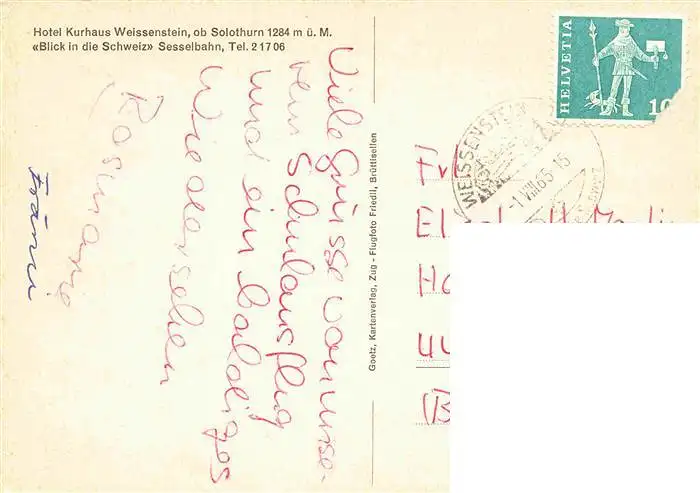 Hotel Kurhaus Weissenstein, ob Solothurn 1284 m ü. M.
«Blick in die Schweiz» Sesselbahn, Tel. 2 17 06
Viele Grüsse von unse-
rem Schulausflug
und ein baldiges
Wiedersehen
Rosmarie
Goetz, Kartenverlag, Zug - Flugfoto Friedli, Brüttisellen
HELVETIA
10
WEISSENSTEIN
-1.VIII.65-15